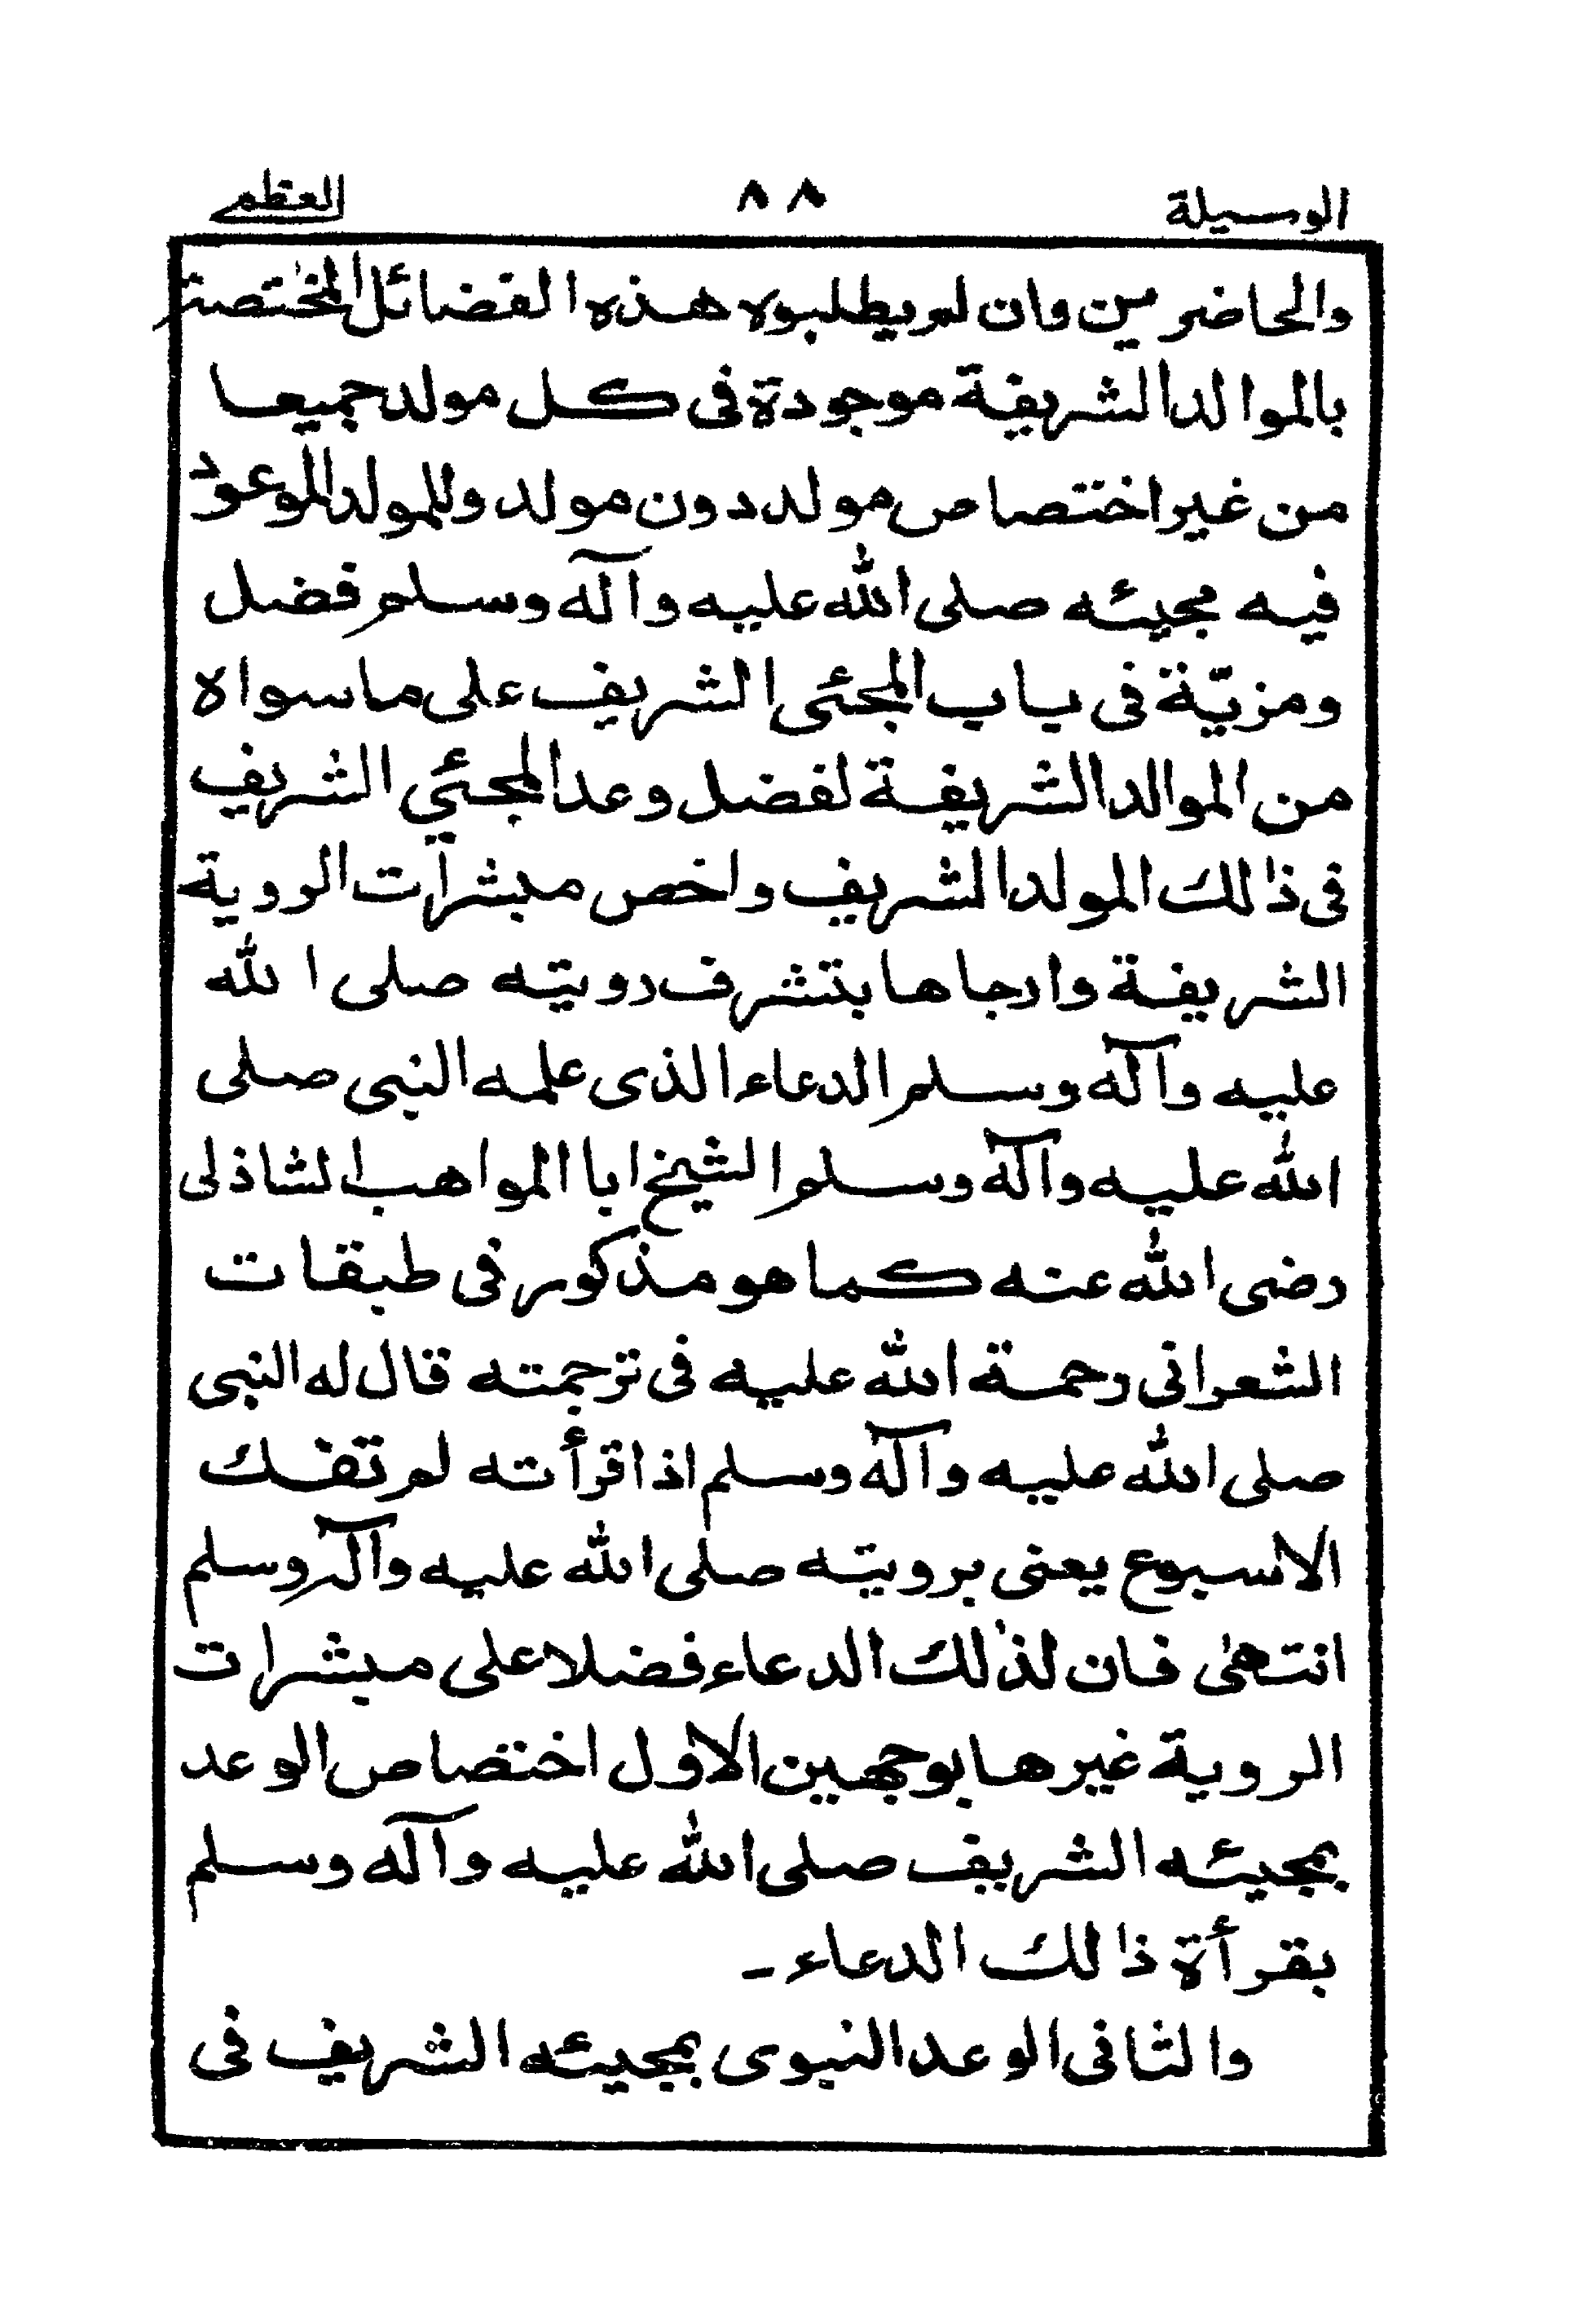 الوسيلة ٨٨ العظمى
والحاضرين وان لم يطلبوه هذه الفضائل المختصة
بالموالد الشريفة موجودة فى كل مولد جميعا
من غير اختصاص مولد دون مولد وللمولد الموعود
فيه مجيئه صلى الله عليه وآله وسلم فضل
ومزيّة فى باب المجئى الشريف على ما سواه
من الموالد الشريفة لفضل وعد المجئي الشريف
فى ذالك المولد الشريف واخص مبشرات الروية
الشريفة وارجاها بتشرف رويته صلى الله
عليه وآله وسلم الدعاء الذى علمه النبى صلى
الله عليه وآله وسلم الشيخ ابا المواهب الشاذلى
رضى الله عنه كما هو مذكور فى طبقات
الشعرانى رحمة الله عليه فى ترجمته قال له النبى
صلى الله عليه وآله وسلم اذا قرأته لم تفك
الاسبوع يعنى برويته صلى الله عليه وآله وسلم
انتهىٰ فان لذٰلك الدعاء فضلا على مبشرات
الروية غيرها بوجهين الاول اختصاص الوعد
بمجيئه الشريف صلى الله عليه وآله وسلم
بقرأة ذالك الدعاء ـ
والثانى الوعد النبوى بمجيئه الشريف فى